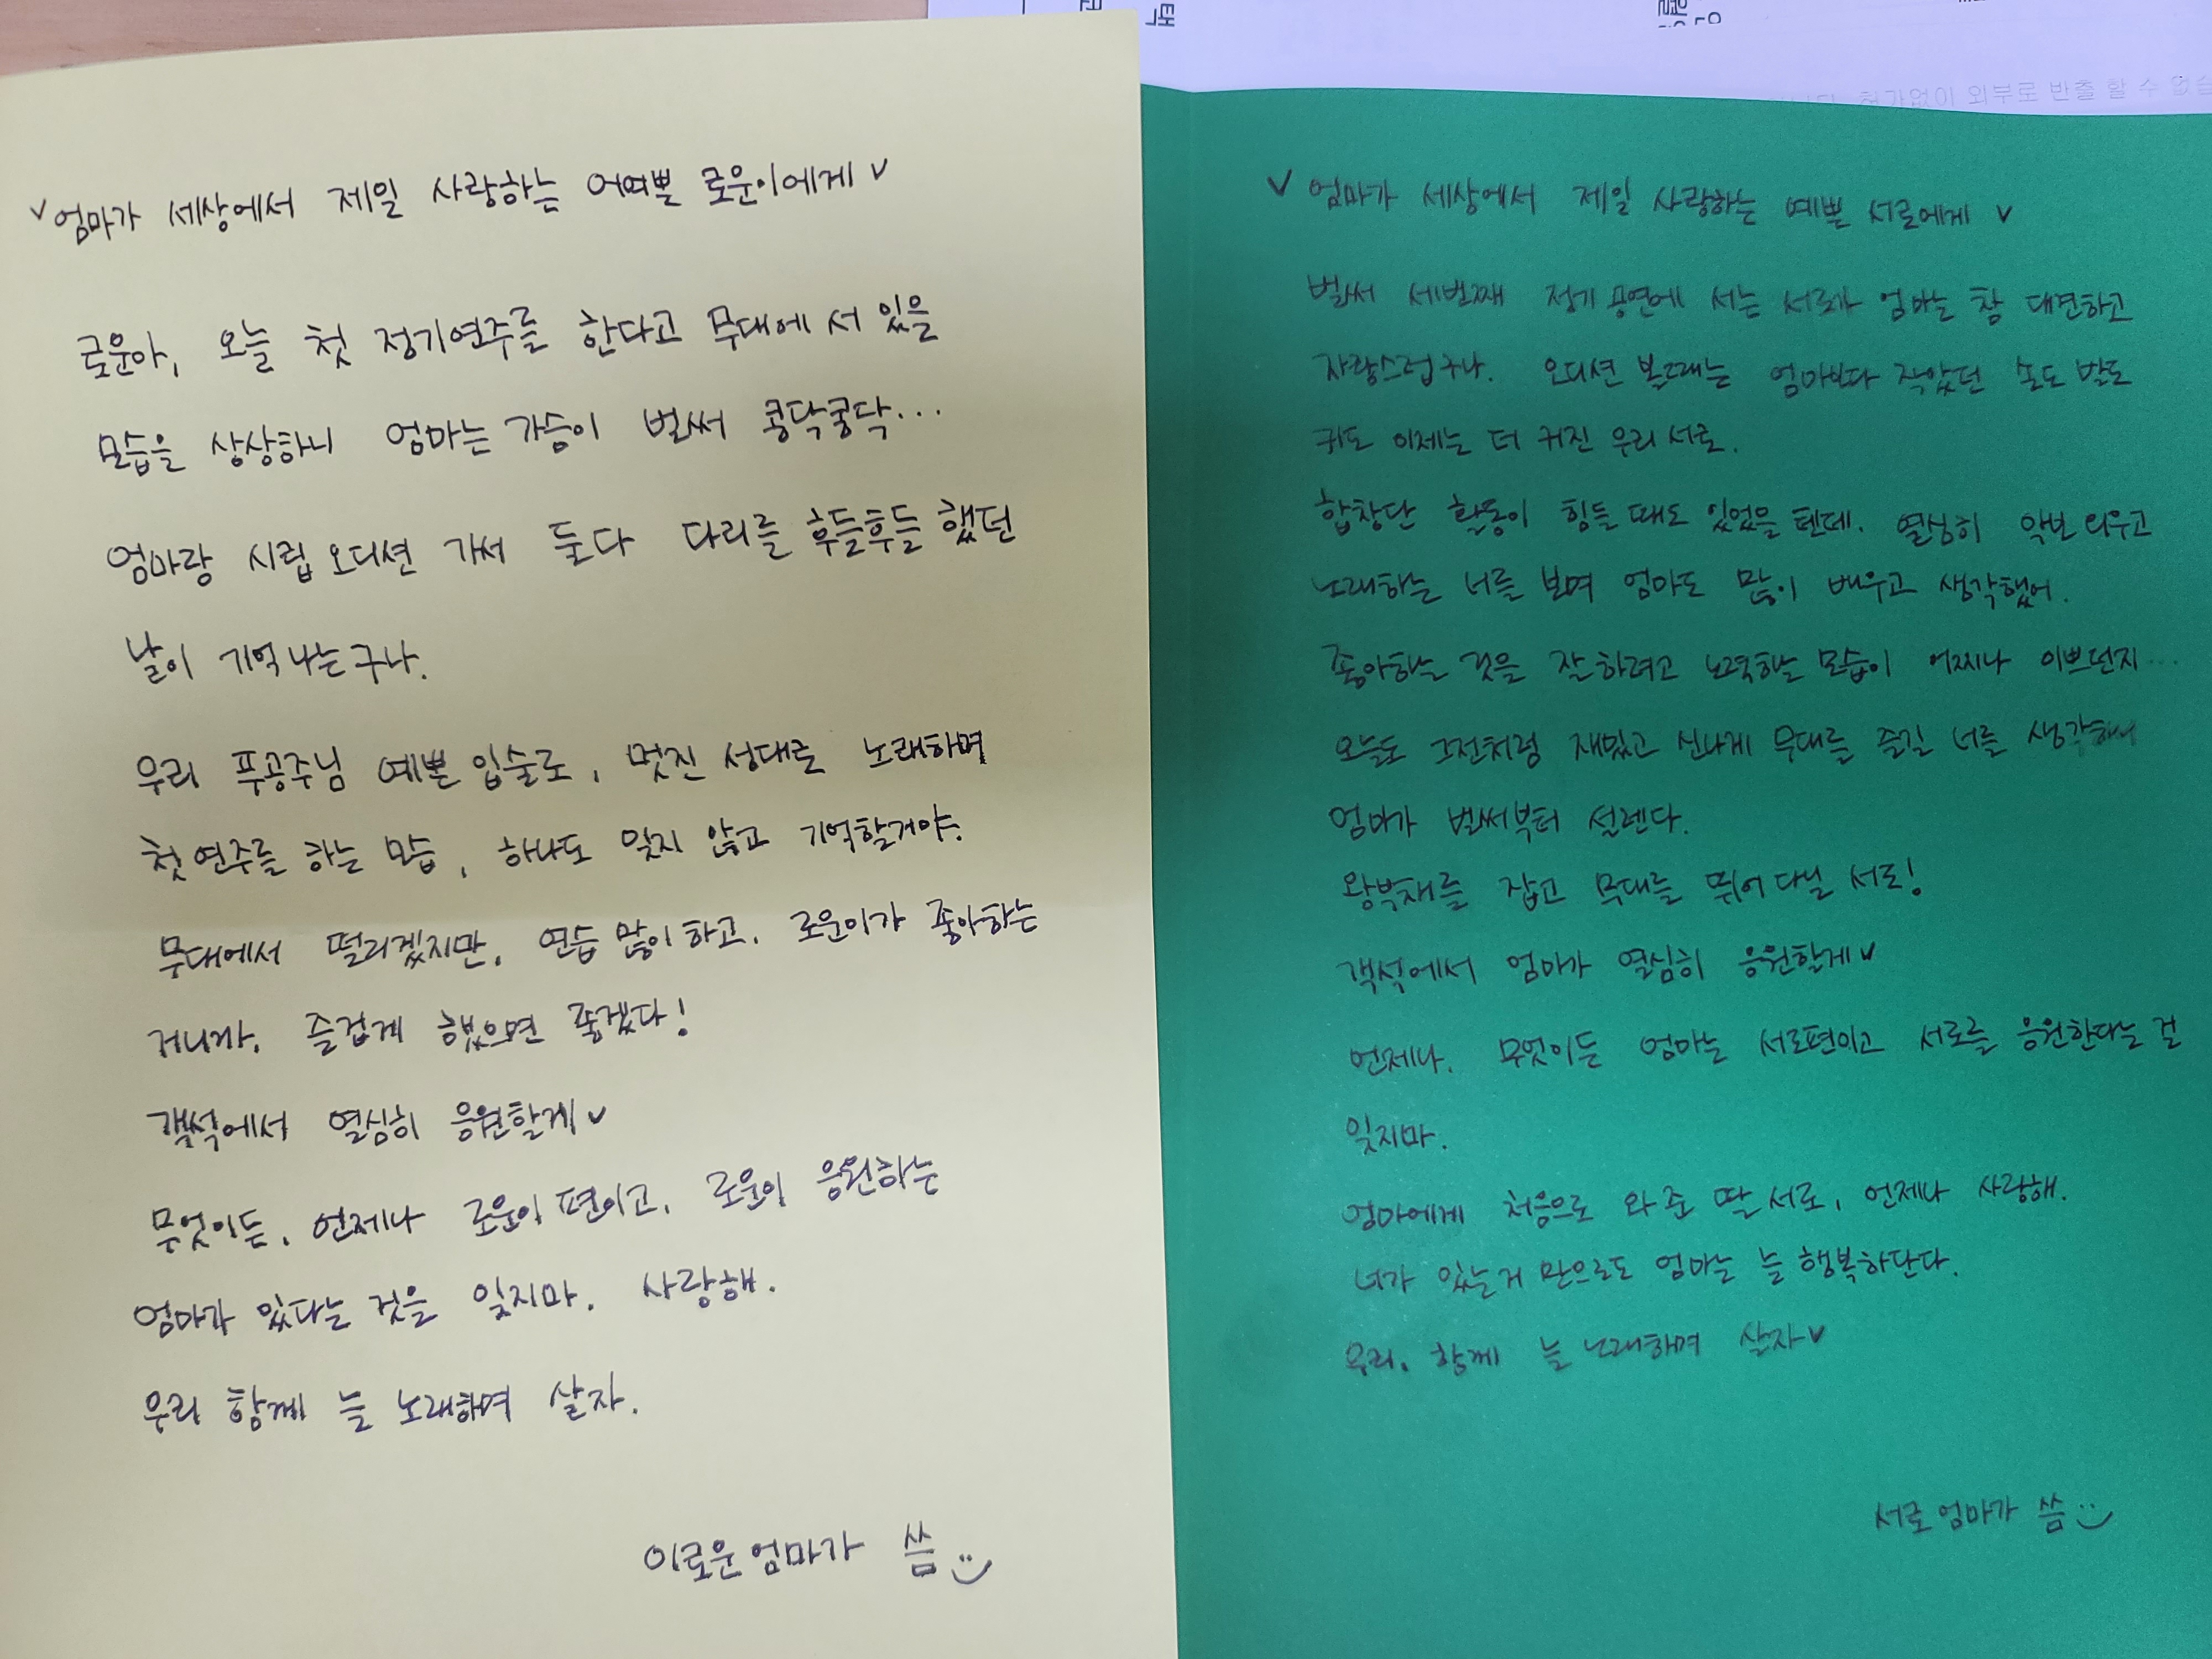 엄마가 세상에서 제일 사랑하는 어여쁜 로운이에게
로운아, 오늘 첫 정기연주를 한다고 무대에 서 있을
모습을 상상하니 엄마는 가슴이 벌써 콩닥쿵닥...
엄마랑 시립 오디션 가서 둘다 다리를 후들후들 했던
날이 기억나는구나.
우리 푸공주님 예쁜 입술로, 멋진 성대로 노래하며
첫 연주를 하는 모습, 하나도 잊지 않고 기억할거야.
무대에서 떨리겠지만, 연습 많이 하고, 로운이가 좋아하는
거니까, 즐겁게 했으면 좋겠다!
객석에서 열심히 응원할게
무엇이든, 언제나 로운이 편이고, 로운이 응원하는
엄마가 있다는 것을 잊지마. 사랑해.
우리 함께 늘 노래하며 살자.
이로운 엄마가 씀
엄마가 세상에서 제일 사랑하는 예쁜 서로에게
벌써 세번째 정기 공연에 서는 서로가 엄마는 참 대견하고
자랑스럽구나. 오디션 볼때는 엄마보다 작았던 손도 발도
키도 이제는 더 커진 우리 서로.
합창단 활동이 힘들 때도 있었을 텐데. 열심히 악보 외우고
노래하는 너를 보며 엄마도 많이 배우고 생각했어.
좋아하는 것을 잘하려고 노력하는 모습이 어찌나 이쁘던지...
오늘도 그전처럼 재밌고 신나게 무대를 즐길 너를 생각하니
엄마가 벌써부터 설렌다.
왕박채를 잡고 무대를 뛰어 다닐 서로!
객석에서 엄마가 열심히 응원할게
언제나, 무엇이든 엄마는 서로편이고 서로를 응원한다는 걸
잊지마.
엄마에게 처음으로 와 준 딸 서로, 언제나 사랑해.
너가 있는거 만으로도 엄마는 늘 행복하단다.
우리, 함께 늘 노래하며 살자
서로 엄마가 씀